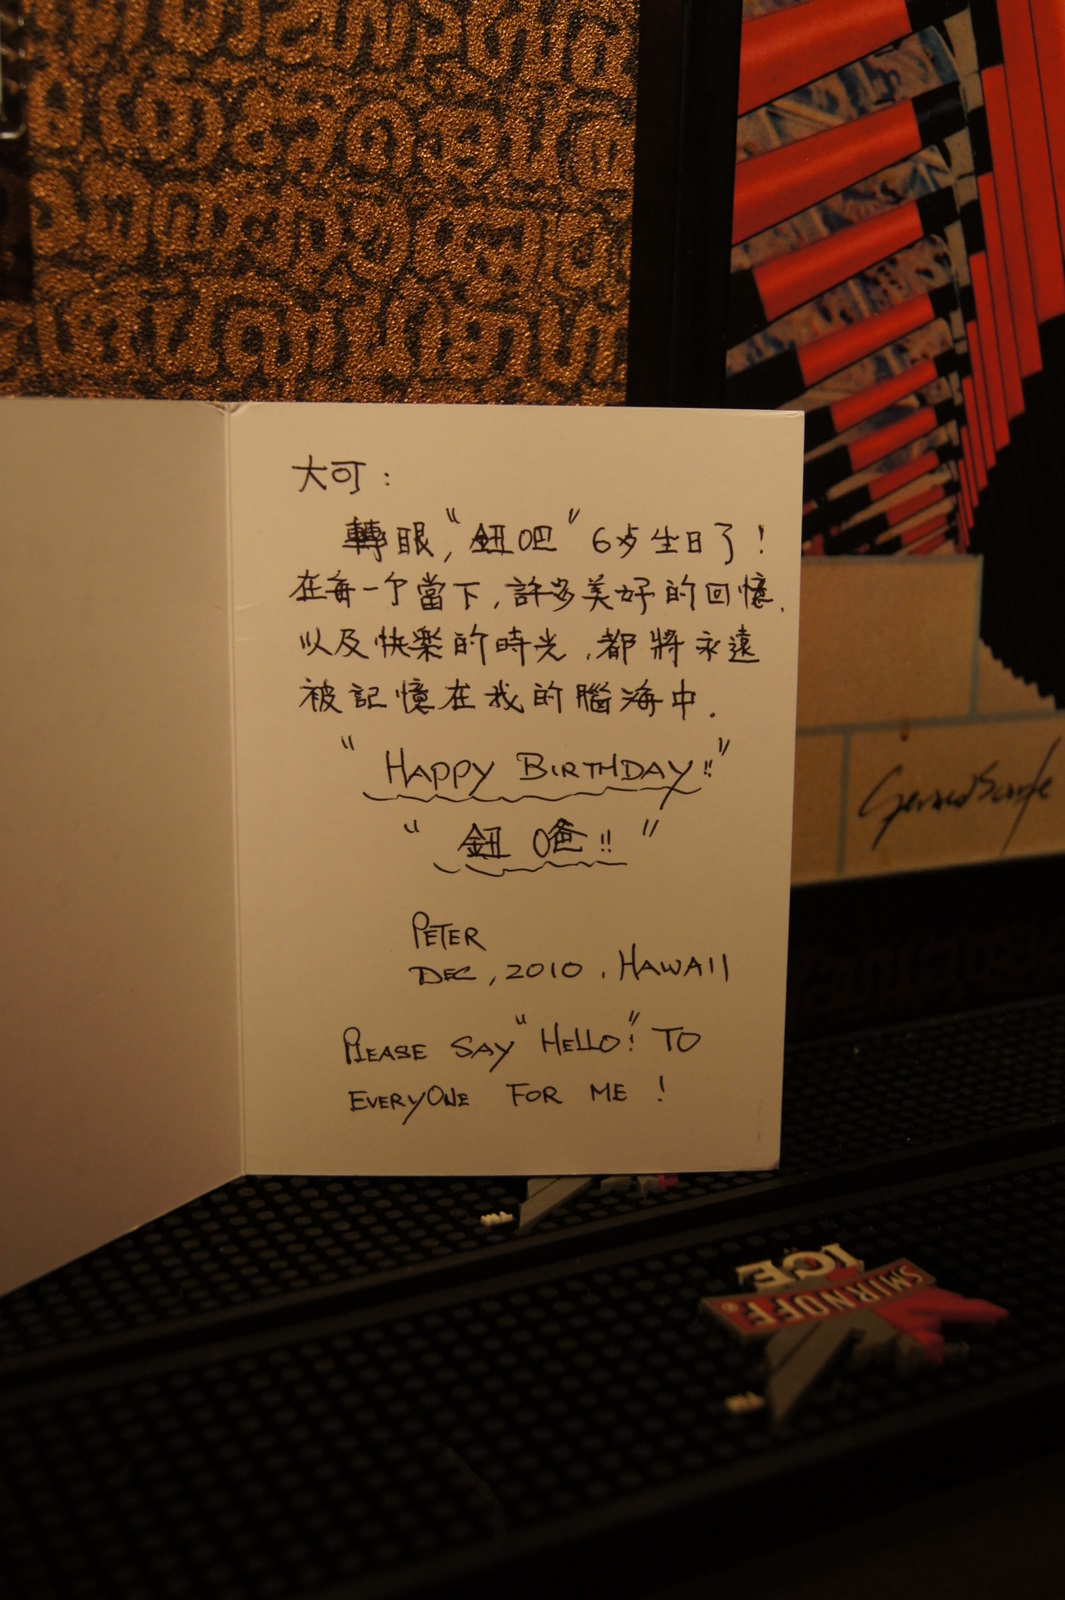 大可：
轉眼，“鈕吧” 6岁生日了！
在每一个當下，許多美好的回憶，
以及快樂的時光，都將永遠
被記憶在我的腦海中．
“ HAPPY BIRTHDAY!! ”
“ 鈕 !! ”
PETER
DEC, 2010 , HAWAII
PLEASE SAY “HELLO!” TO
EVERYONE FOR ME !
Gerald Scarfe
SMIRNOFF®
ICE